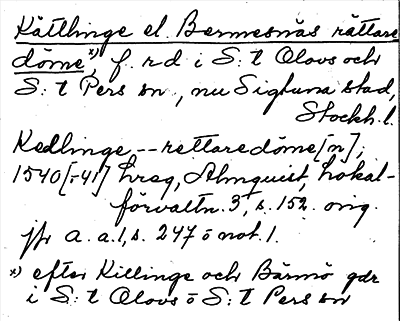 Kättlinge el. Bermesnäs rättare
döme*), f. rd i S:t Olovs och
S:t Pers sn, nu Sigtuna stad,
Stockh. l.
Kedlinge -- rettaredöme[n],
1540[-41] hreg, Almquist, Lokal-
förvaltn. 3, s. 152. orig.
jfr a. a. 1, s. 247 o not. 1.
*) efter Killinge och Bärmö gdr
i S:t Olovs o S:t Pers sn